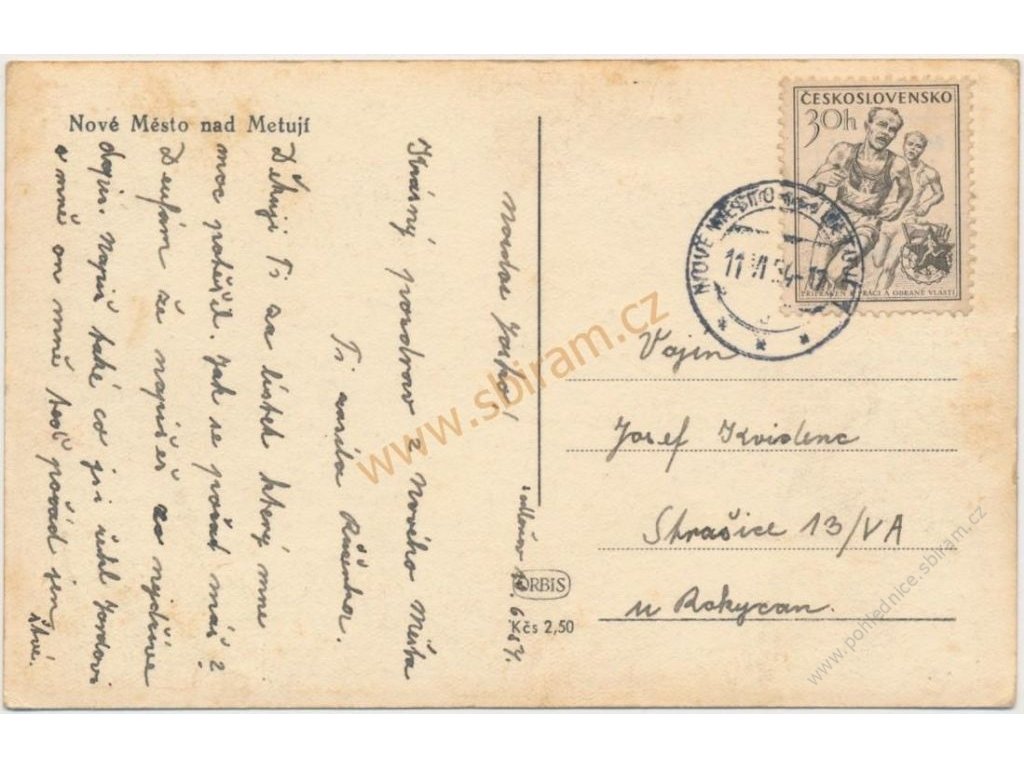 Nové Město nad Metují
Jarka!
Krásný pozdrav z Nového Města
Ti zasílá Růženka.
Děkuji Ti za lístek který mne
moc potěšil. Jak se pořád máš?
Doufám že napíšeš co nejdříve
dopis. Napiš také co jsi řekl Jardovi
o mně on mně pořád jen
ORBIS
Kčs 2,50
ČESKOSLOVENSKO
30h
PŘIPRAVEN K PRÁCI A OBRANĚ VLASTI
NOVÉ MĚSTO NAD METUJÍ
11 VI 54-17
Vojín
Josef Kvidenc
Strašice 13/VA
u Rokycan.
www.sbiram.cz
www.pohlednice.sbiram.cz